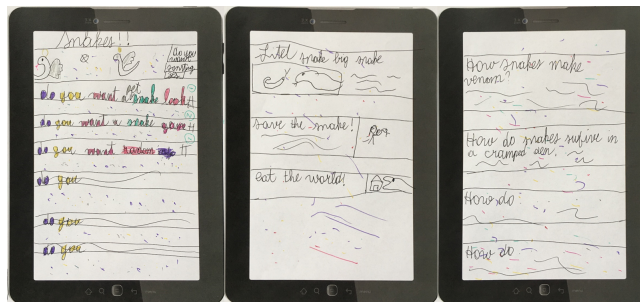 snakes!!
do you
want
do you want a pet snake look
do you want a snake game
do you want
do you
do you
do you
Litel snake big snake
save the snake!
eat the world!
How snakes make
venom?
How do snakes sufive in
a cramped den.
How do
How do